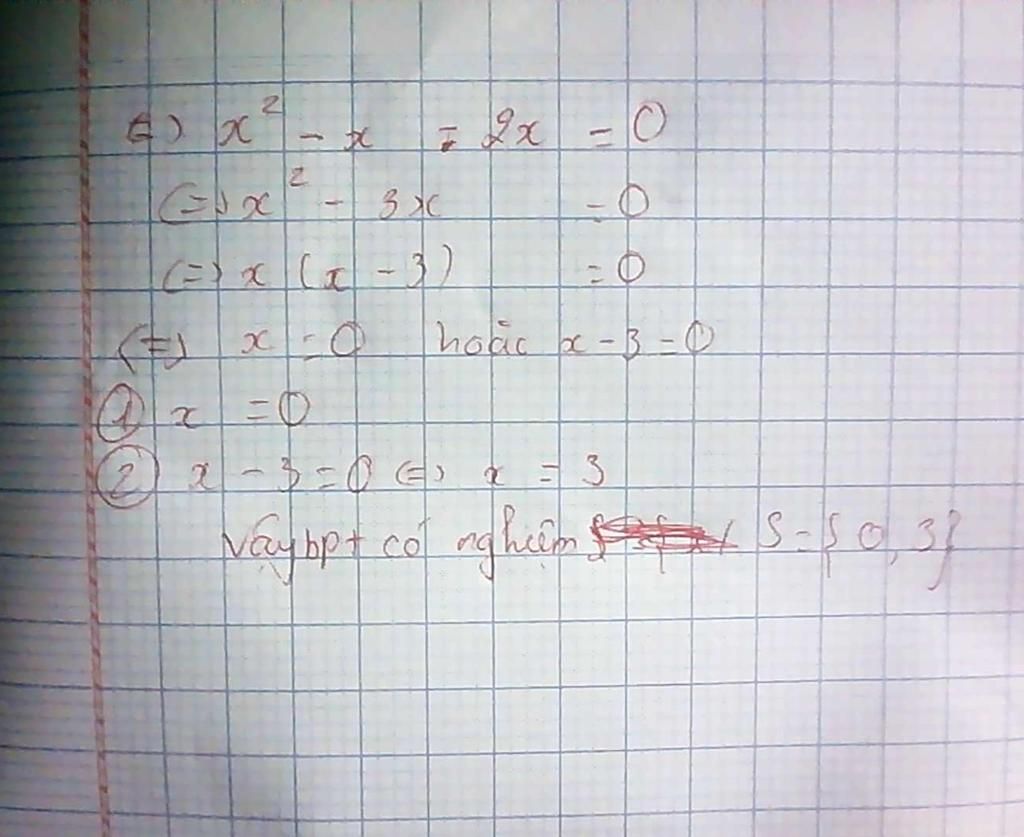 (=) x² - x - 2x = 0
(=) x² - 3x = 0
(=) x (x - 3) = 0
(=) x = 0 hoặc x - 3 = 0
① x = 0
② x - 3 = 0 (=) x = 3
Vậy bpt có nghiệm S = {0, 3}